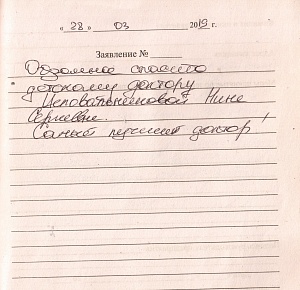 « 28 » 03 2019 г.
Заявление №
Огромное спасибо
детскому доктору
Нине
Сергеевне.
Самый лучший доктор!